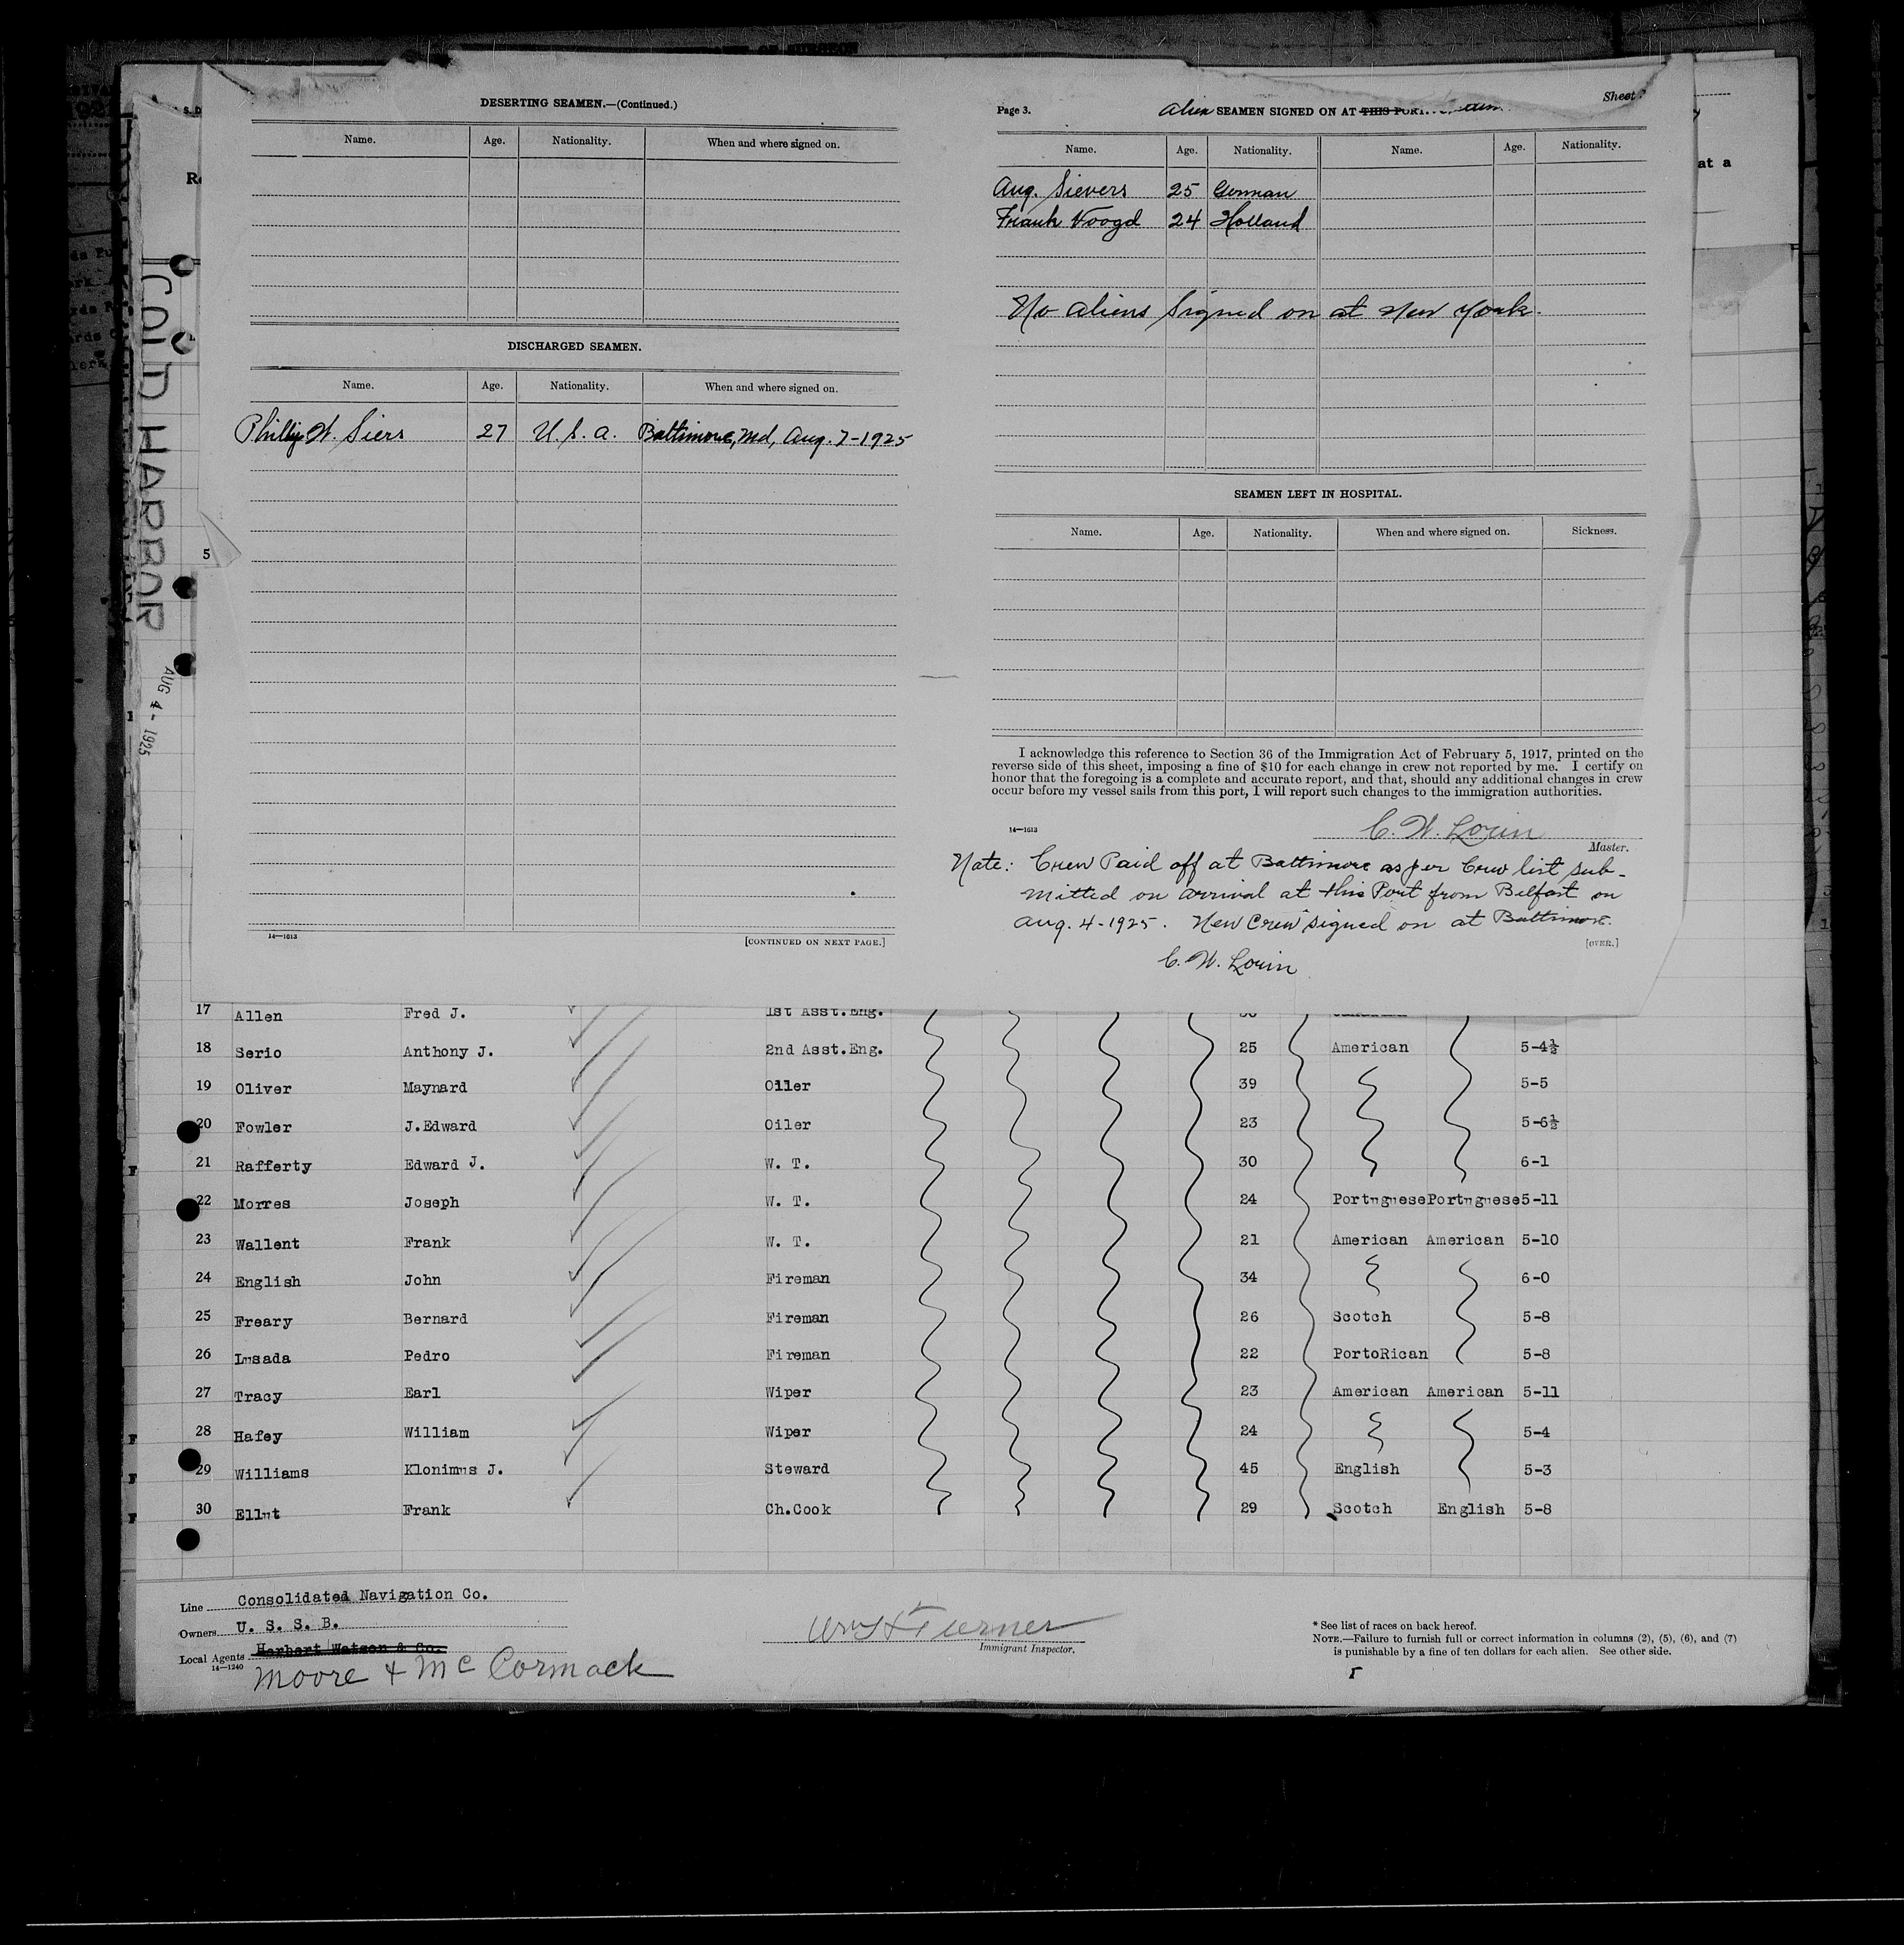 DESERTING SEAMEN.—(Continued.)
Name. Age. Nationality. When and where signed on.
DISCHARGED SEAMEN.
Name. Age. Nationality. When and where signed on.
Phillip W. Siers 27 U. S. A. Baltimore, Md, Aug. 7-1925
14—1613
[CONTINUED ON NEXT PAGE.]
Sheet
Page 3.
Alien SEAMEN SIGNED ON AT THIS PORT.
Name. Age. Nationality. Name. Age. Nationality.
Aug. Sievers 25 German
Frank Voogd 24 Holland
No aliens signed on at New York.
SEAMEN LEFT IN HOSPITAL.
Name. Age. Nationality. When and where signed on. Sickness.
I acknowledge this reference to Section 36 of the Immigration Act of February 5, 1917, printed on the
reverse side of this sheet, imposing a fine of $10 for each change in crew not reported by me. I certify on
honor that the foregoing is a complete and accurate report, and that, should any additional changes in crew
occur before my vessel sails from this port, I will report such changes to the immigration authorities.
14—1613
C. W. Lorin
Master.
Note: Crew Paid off at Baltimore as per Crew list sub-
mitted on arrival at this Port from Belfast on
Aug. 4-1925. New Crew signed on at Baltimore.
[OVER.]
C. W. Lorin
at a
COLD HARBOR
AUG 4 - 1925
5
17 Allen Fred J. 1st Asst.Eng.
18 Serio Anthony J. 2nd Asst.Eng. 25 American 5-4½
19 Oliver Maynard Oiler 39 5-5
20 Fowler J.Edward Oiler 23 5-6½
21 Rafferty Edward J. W. T. 30 6-1
22 Morres Joseph W. T. 24 Portuguese Portuguese 5-11
23 Wallent Frank W. T. 21 American American 5-10
24 English John Fireman 34 6-0
25 Freary Bernard Fireman 26 Scotch 5-8
26 Lusada Pedro Fireman 22 PortoRican 5-8
27 Tracy Earl Wiper 23 American American 5-11
28 Hafey William Wiper 24 5-4
29 Williams Klonimus J. Steward 45 English 5-3
30 Ellut Frank Ch.Cook 29 Scotch English 5-8
Line Consolidated Navigation Co.
Owners U. S. S. B.
Local Agents Herbert Watson & Co.
14—1240
Moore & McCormack
Wm H Turner
Immigrant Inspector.
* See list of races on back hereof.
NOTE.—Failure to furnish full or correct information in columns (2), (5), (6), and (7)
is punishable by a fine of ten dollars for each alien. See other side.